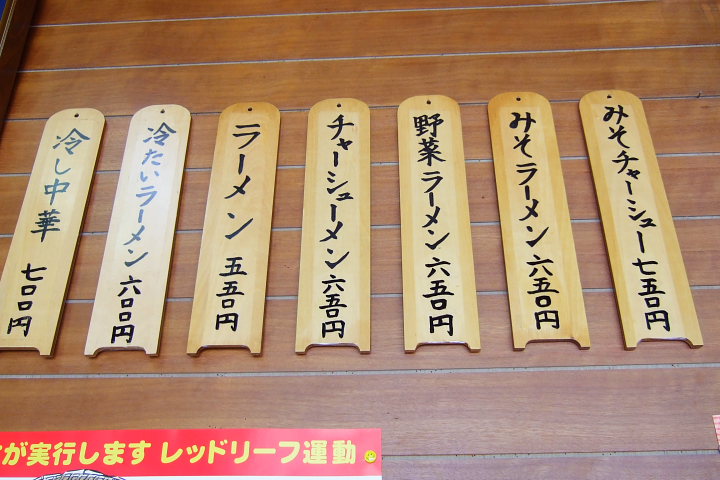 みそチャーシュー七五〇円
みそラーメン六五〇円
野菜ラーメン六五〇円
チャーシューメン六五〇円
ラーメン五五〇円
冷たいラーメン六〇〇円
冷し中華七〇〇円
が実行します レッドリーフ運動